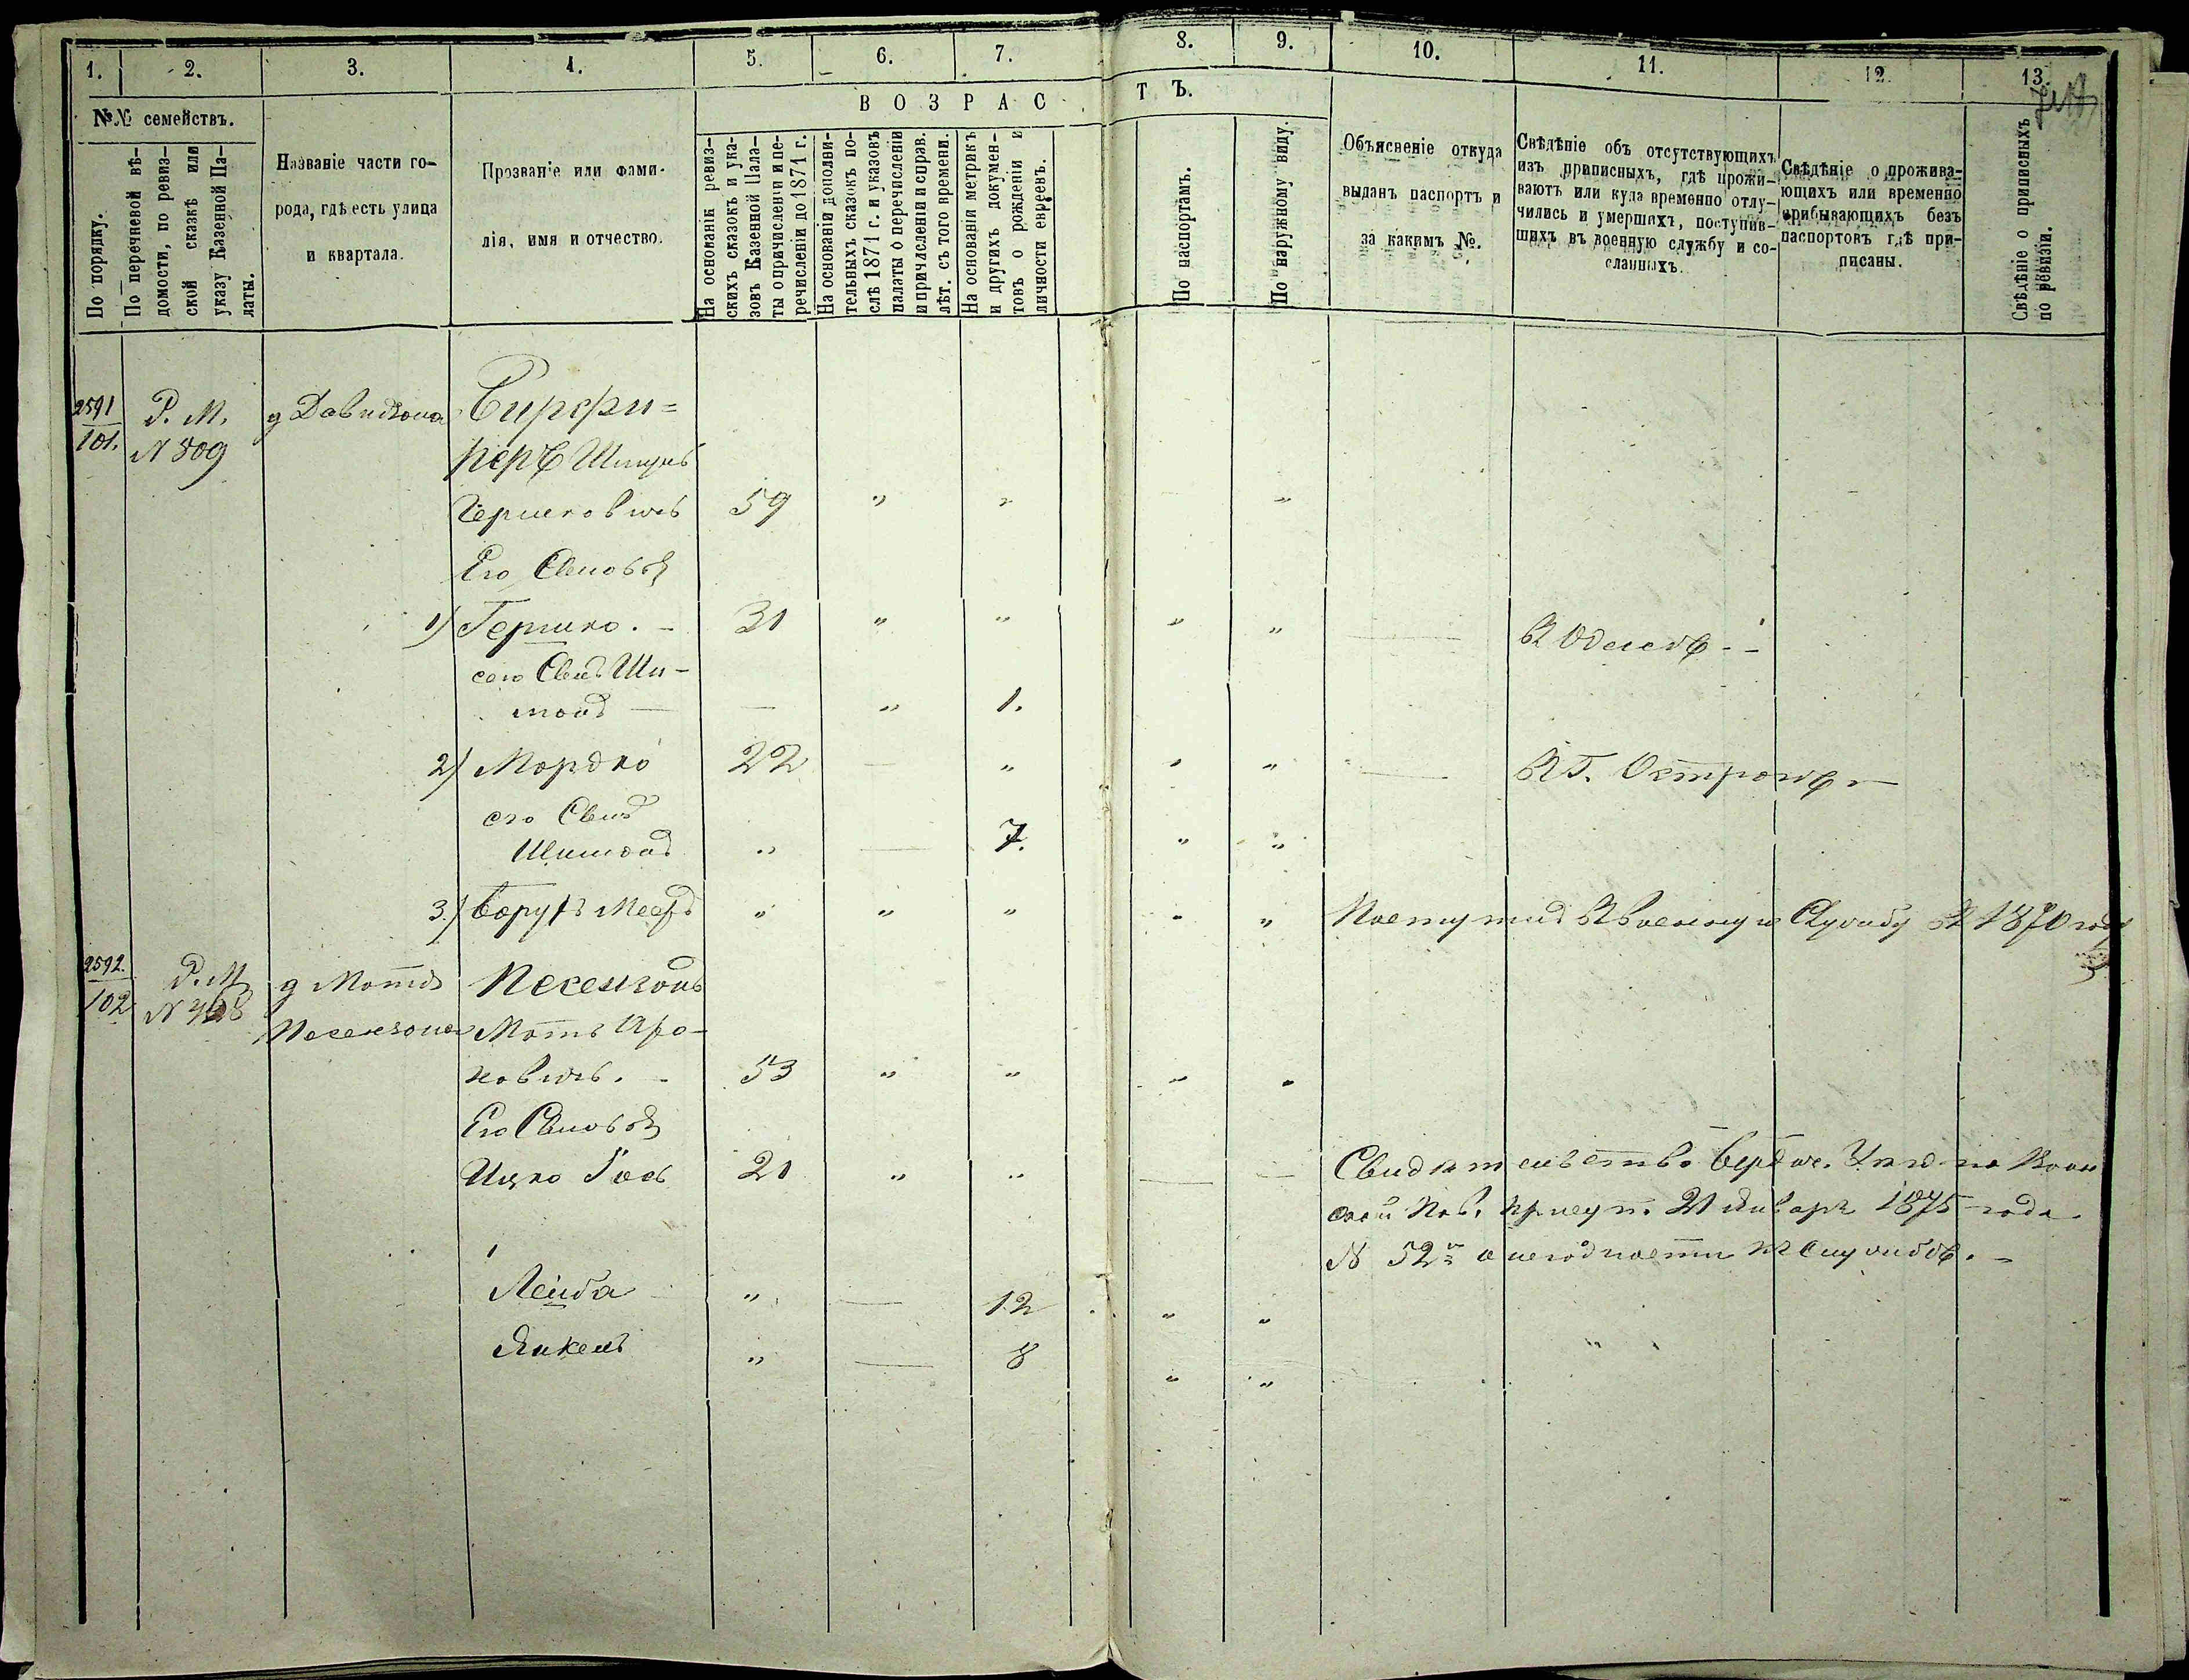 1. 2. 3. 4. 5. 6. 7. 8. 9. 10. 11. 12. 13.
№№ семействъ.
По порядку.
По перечневой вѣ-
домости, по ревиз-
ской сказкѣ или
указу Казенной Па-
латы.
Названіе части го-
рода, гдѣ есть улица
и квартала.
Прозваніе или фами-
лія, имя и отчество.
ВОЗРАСТЪ.
На основаніи ревиз-
скихъ сказокъ и ука-
зовъ Казенной Пала-
ты о причисленіи и пе-
речисленіи до 1871 г.
На основаніи дополни-
тельныхъ сказокъ по-
слѣ 1871 г. и указовъ
палаты о перечисленіи
и причисленіи и справ.
лѣт. съ того времени.
На основаніи метрикъ
и другихъ докумен-
товъ о рожденіи и
личности евреевъ.
По паспортамъ.
По наружному виду.
Объясненіе откуда
выданъ паспортъ и
за какимъ №.
Свѣдѣніе объ отсутствующихъ
изъ приписныхъ, гдѣ прожи-
ваютъ или куда временно отлу-
чились и умершихъ, поступив-
шихъ въ военную службу и со-
сланныхъ.
Свѣдѣніе о прожива-
ющихъ или временно
прибывающихъ безъ
паспортовъ гдѣ при-
писаны.
Свѣдѣніе о приписныхъ
по ревизіи.
2591 Р. М. д Давидзона
101. N 509
Гершковичъ 59 " " "
Его Сыновья
1) Гершко. - 31 " " " " въ Одессѣ -
его Сынъ Ши-
монъ — — " 1.
2) Мордко 22 — " " " въ Г. Острогѣ -
его Сынъ
Шимонъ " — 7. " "
3) Борухъ Мееръ " " " " " Поступилъ въ военную Службу въ 1870 году
2592. Р. М. д Мотя Песензонъ
102 Песензона Мотя Аро-
новичъ. - 53 " " " "
Его Сыновья
Ицко Іосъ 21 " " — — Свидѣтельство Бердич. Уѣзд. по Воин
ской Пов. присут. 21 Января 1875 года
N 52й о негодности къ службѣ. -
Лейба " — 12 " "
Янкель " — 8 " "